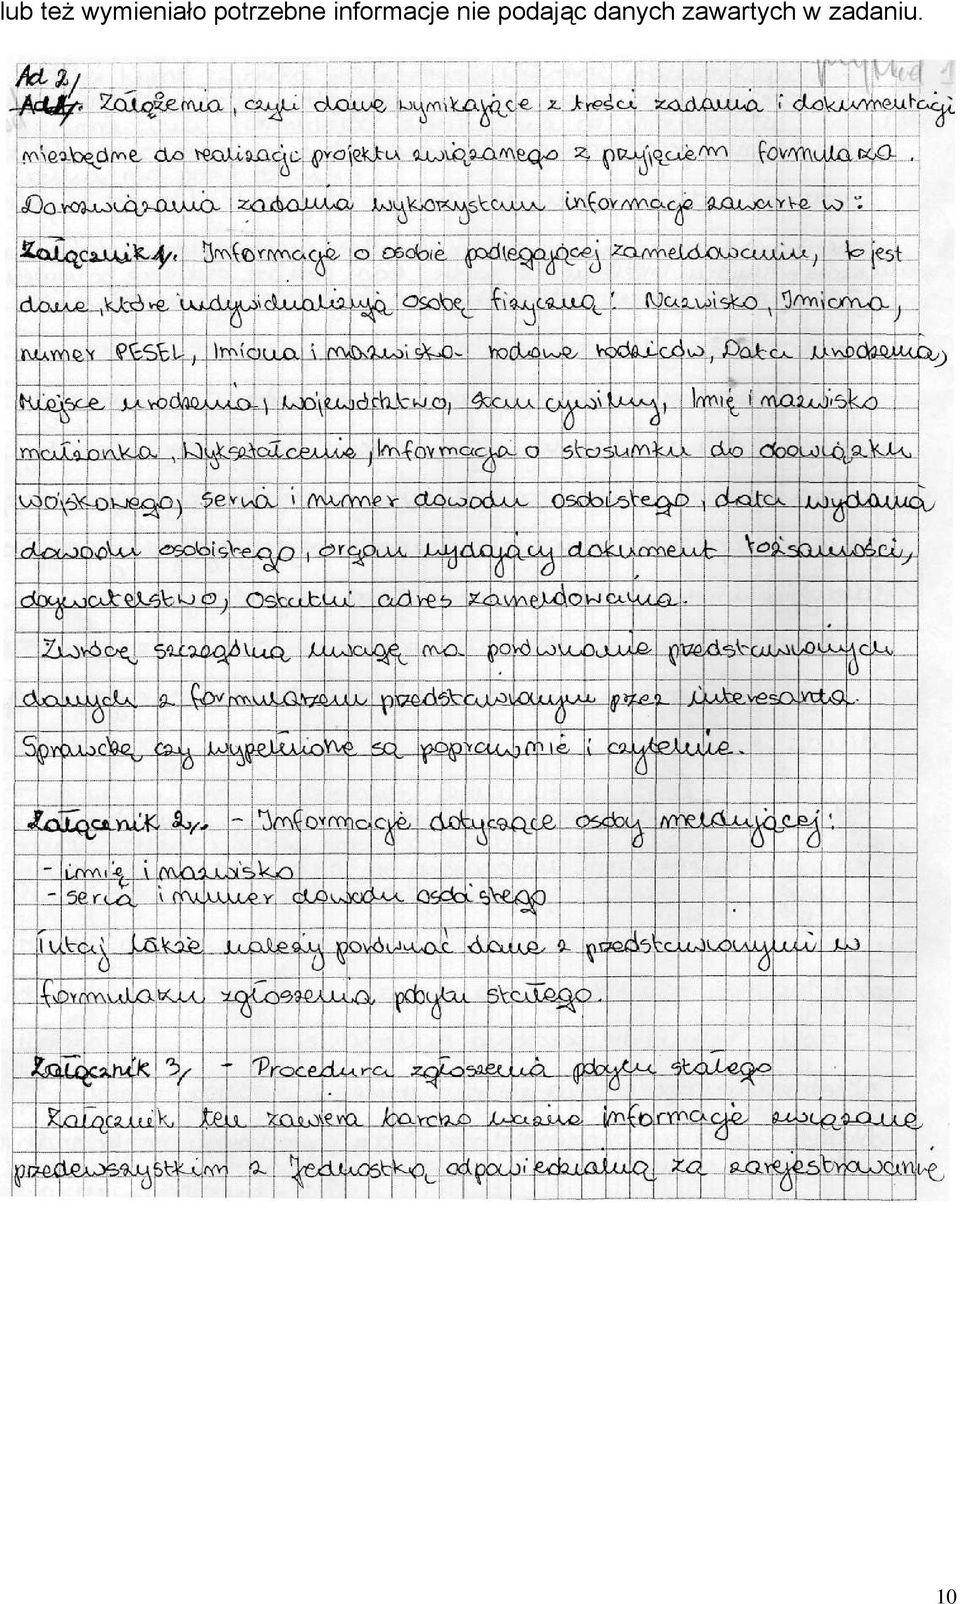 lub też wymieniało potrzebne informacje nie podając danych zawartych w zadaniu.
Ad 2/
Założenia, czyli dane wynikające z treści zadania i dokumentacji
niezbędne do realizacji projektu związanego z przyjęciem formularza.
Do rozwiązania zadania wykorzystam informacje zawarte w:
Załącznik 1. Informacje o osobie podlegającej zameldowaniu, to jest
dane, które indywidualizują osobę fizyczną: Nazwisko, Imiona,
numer PESEL, Imiona i nazwiska rodowe rodziców, Data urodzenia,
Miejsce urodzenia, województwo, stan cywilny, Imię i nazwisko
małżonka, Wykształcenie, Informacja o stosunku do obowiązku
wojskowego, seria i numer dowodu osobistego, data wydania
dowodu osobistego, organ wydający dokument tożsamości,
obywatelstwo, ostatni adres zameldowania.
Zwrócę szczególną uwagę na porównanie przedstawionych
danych z formularzem przedstawionym przez interesanta.
Sprawdzę czy wypełnione są poprawnie i czytelnie.
Załącznik 2. - Informacje dotyczące osoby meldującej:
- imię i nazwisko
- seria i numer dowodu osobistego
Tutaj także należy porównać dane z przedstawionymi w
formularzu zgłoszenia pobytu stałego.
Załącznik 3, - Procedura zgłoszenia pobytu stałego
Załącznik ten zawiera bardzo ważne informacje związane
przedewszystkim z Jednostką odpowiedzialną za zarejestrowanie
10